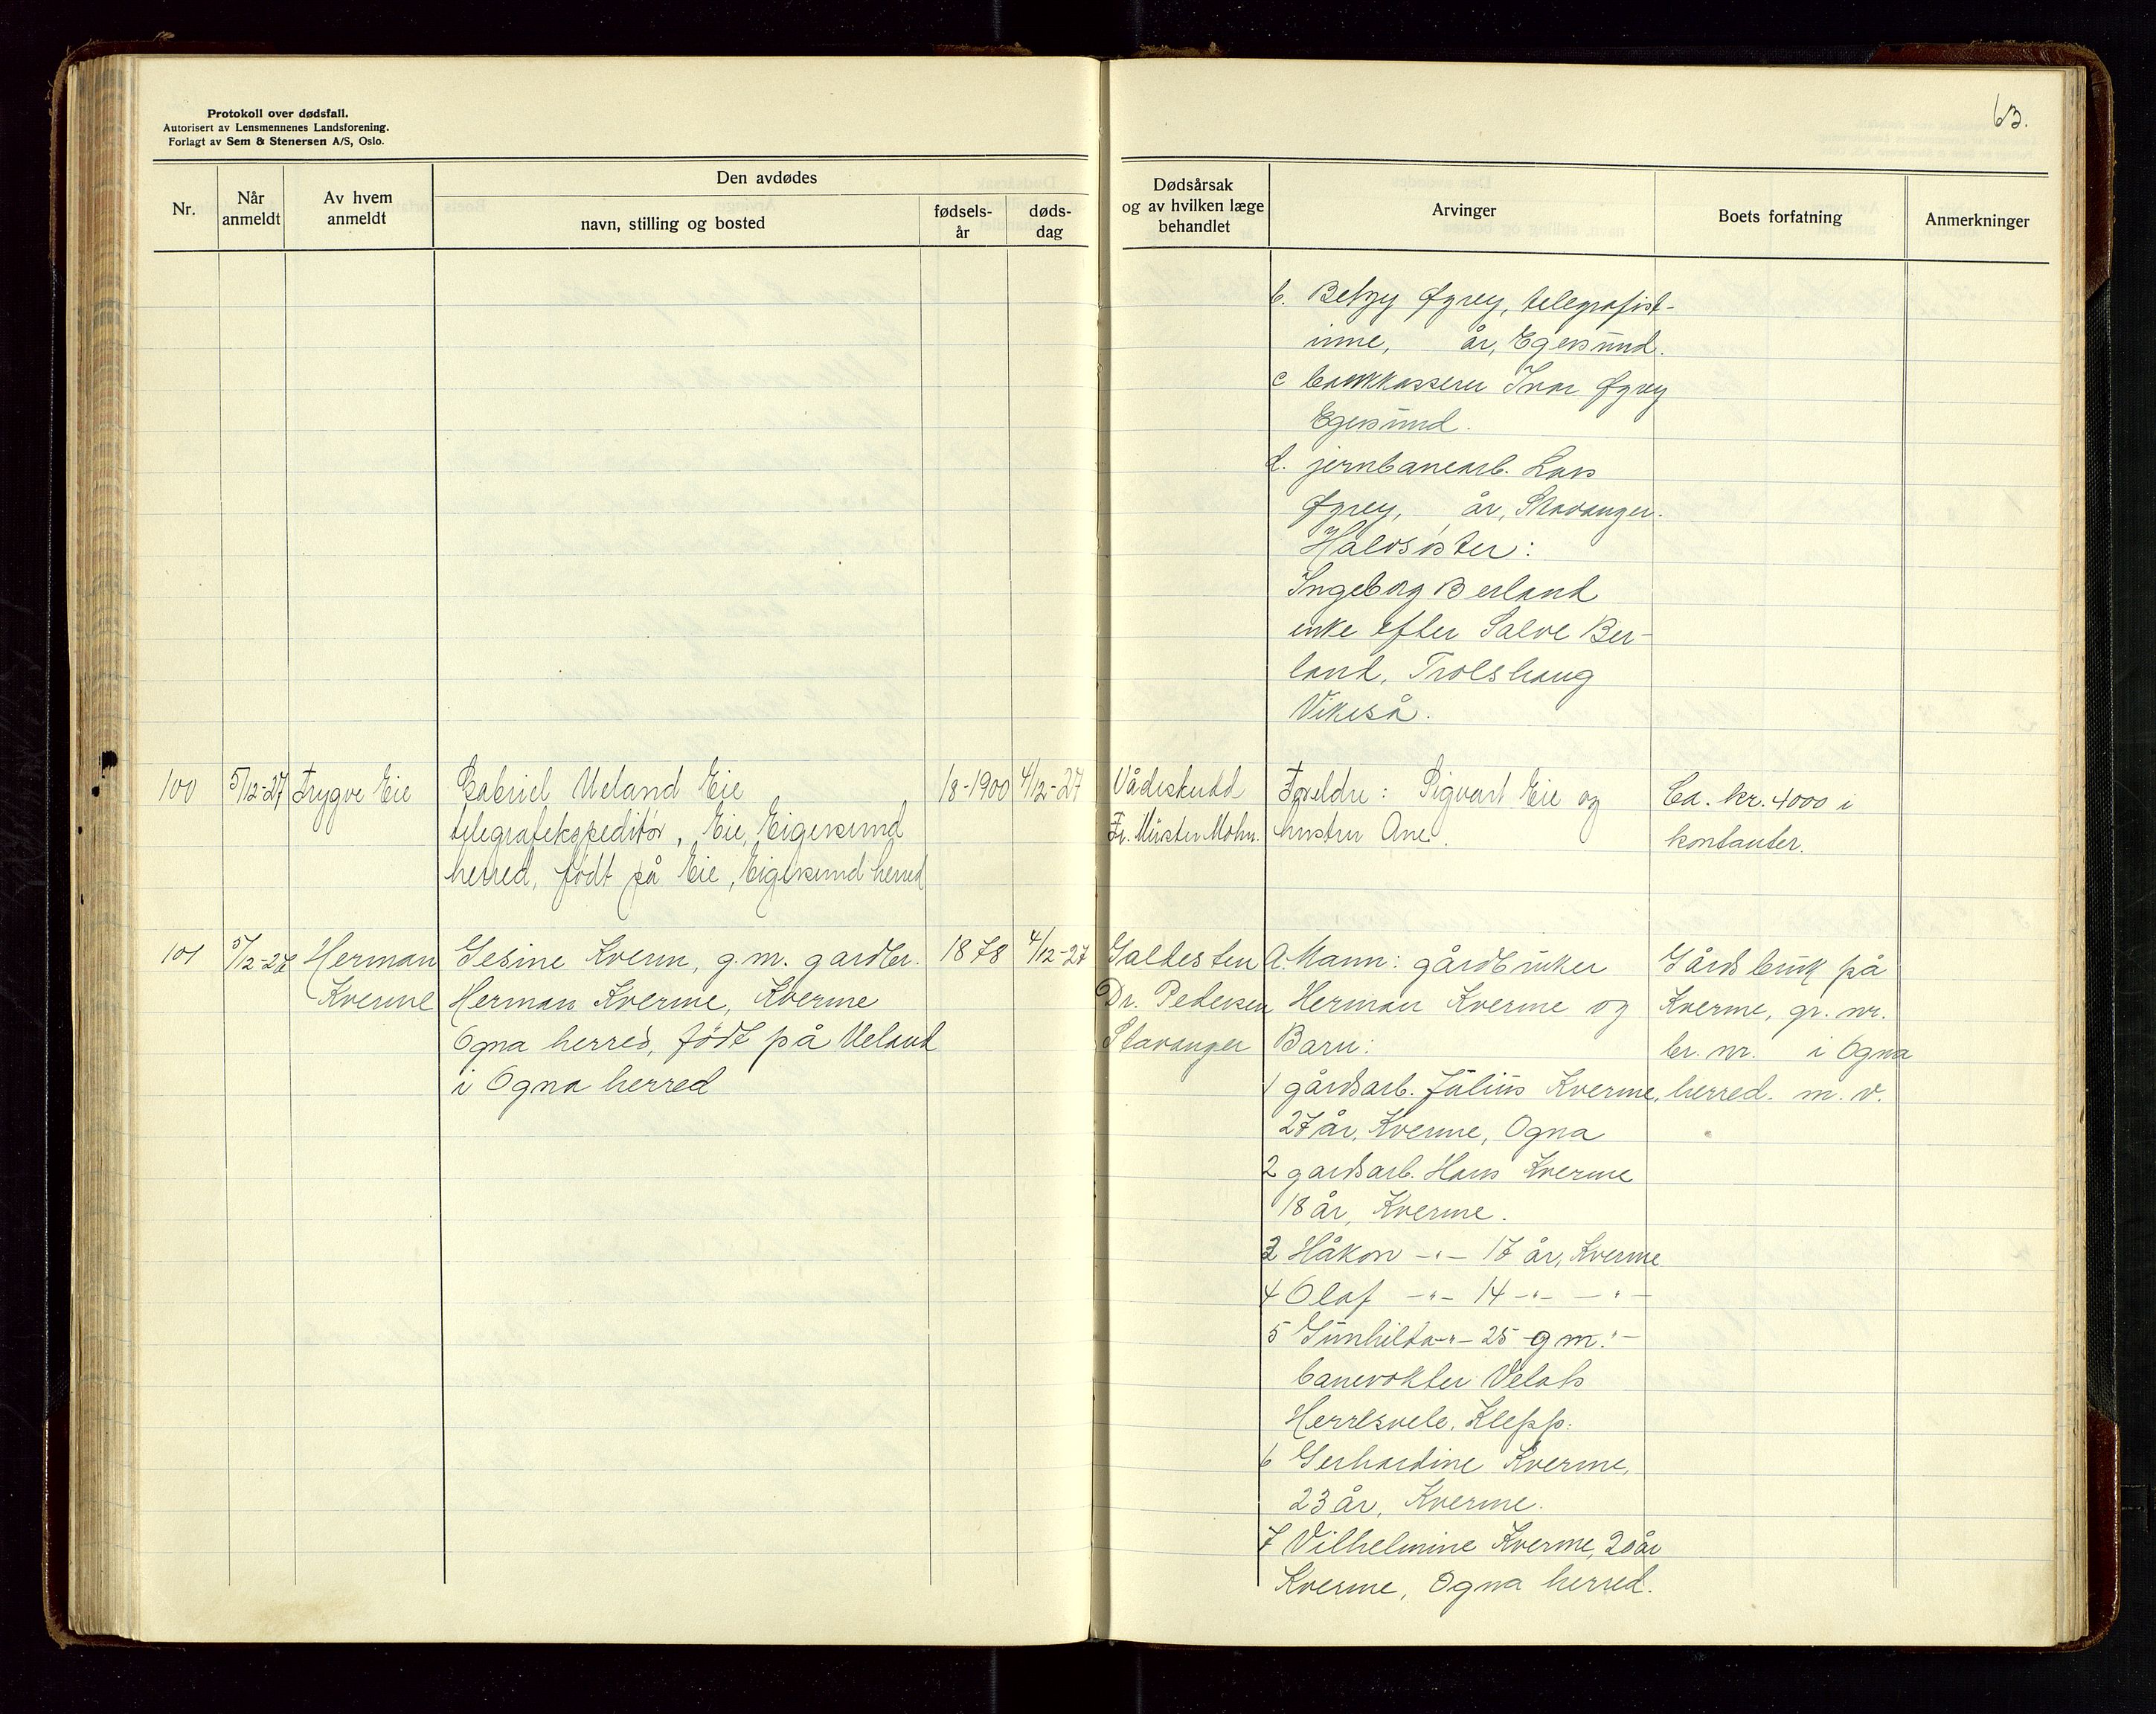 Protokoll over dødsfall.
Autorisert av Lensmennenes Landsforening.
Forlagt av Sem & Stenersen A/S, Oslo.
63.
Nr.
Når anmeldt
Av hvem anmeldt
Den avdødes
navn, stilling og bosted
fødsels-år
døds-dag
Dødsårsak og av hvilken læge behandlet
Arvinger
Boets forfatning
Anmerkninger
b. Betzy Øgrey, telegrafist-
inne, år, Egersund.
c bankkasserer Ivar Øgrey
Egersund.
d. jernbanearb. Lars
Øgrey, år, Stavanger.
Halvsøster:
Ingeborg Berland
enke efter Salve Ber-
land, Trolshaug
Vikeså.
100 5/12-27 Trygve Eie Gabriel Ueland Eie 18-1900 4/12-27 Vådeskudd Foreldre: Sigvart Eie og Ca. kr. 4000 i
telegrafekspeditør, Eie, Eigersund Mohn. hustru Ane. kontanter.
herred, født på Eie, Eigersund herred
101 5/12-27 Herman Gesine Kverm, g.m. gardbr. 1878 4/12-27 Galdesten A. Mann: gårdbruker Gårdsbruk på
Kverme Herman Kverme, Kverme Dr. Pedersen Herman Kverme og Kverme, gr. nr.
Ogna herred, født på Ueland Stavanger Barn: br. nr. i Ogna
i Ogna herred 1 gårdsarb. Julius Kverme, herred. m. v.
27 år, Kverme, Ogna
2 gardsarb. Hans Kverme
18 år, Kverme.
3 Håkon -"- 17 år, Kverme
4 Olaf -"- 14 -"- -"-
5 Gunhilda -"- 25 - g m. -"-
banevokter
Klepp.
6 Gerhardine Kverme,
23 år, Kverme.
7 Vilhelmine Kverme, 20 år
Kverme, Ogna herred.